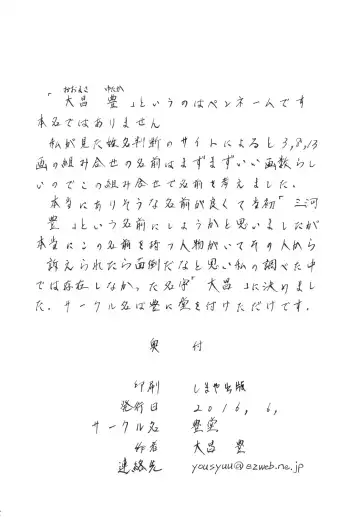 おおまさ　ゆたか
「大昌　豊」というのはペンネームです
本名ではありません
私が見た姓名判断のサイトによると3,8,13
画の組み合せの名前はまずまずいい画数らし
いのでこの組み合せで名前を考えました。
本当にありそうな名前が良くて最初「三河
豊」という名前にしようかと思いましたが
本当にこの名前を持つ人物がいてその人から
訴えられたら面倒だなと思い私の調べた中
では存在しなかった名字「大昌」に決めまし
た。サークル名は豊に堂を付けただけです。
奥　付
印刷　しまや出版
発行日　2016,6,
サークル名　豊堂
作者　大昌　豊
連絡先　yousyuu@ezweb.ne.jp